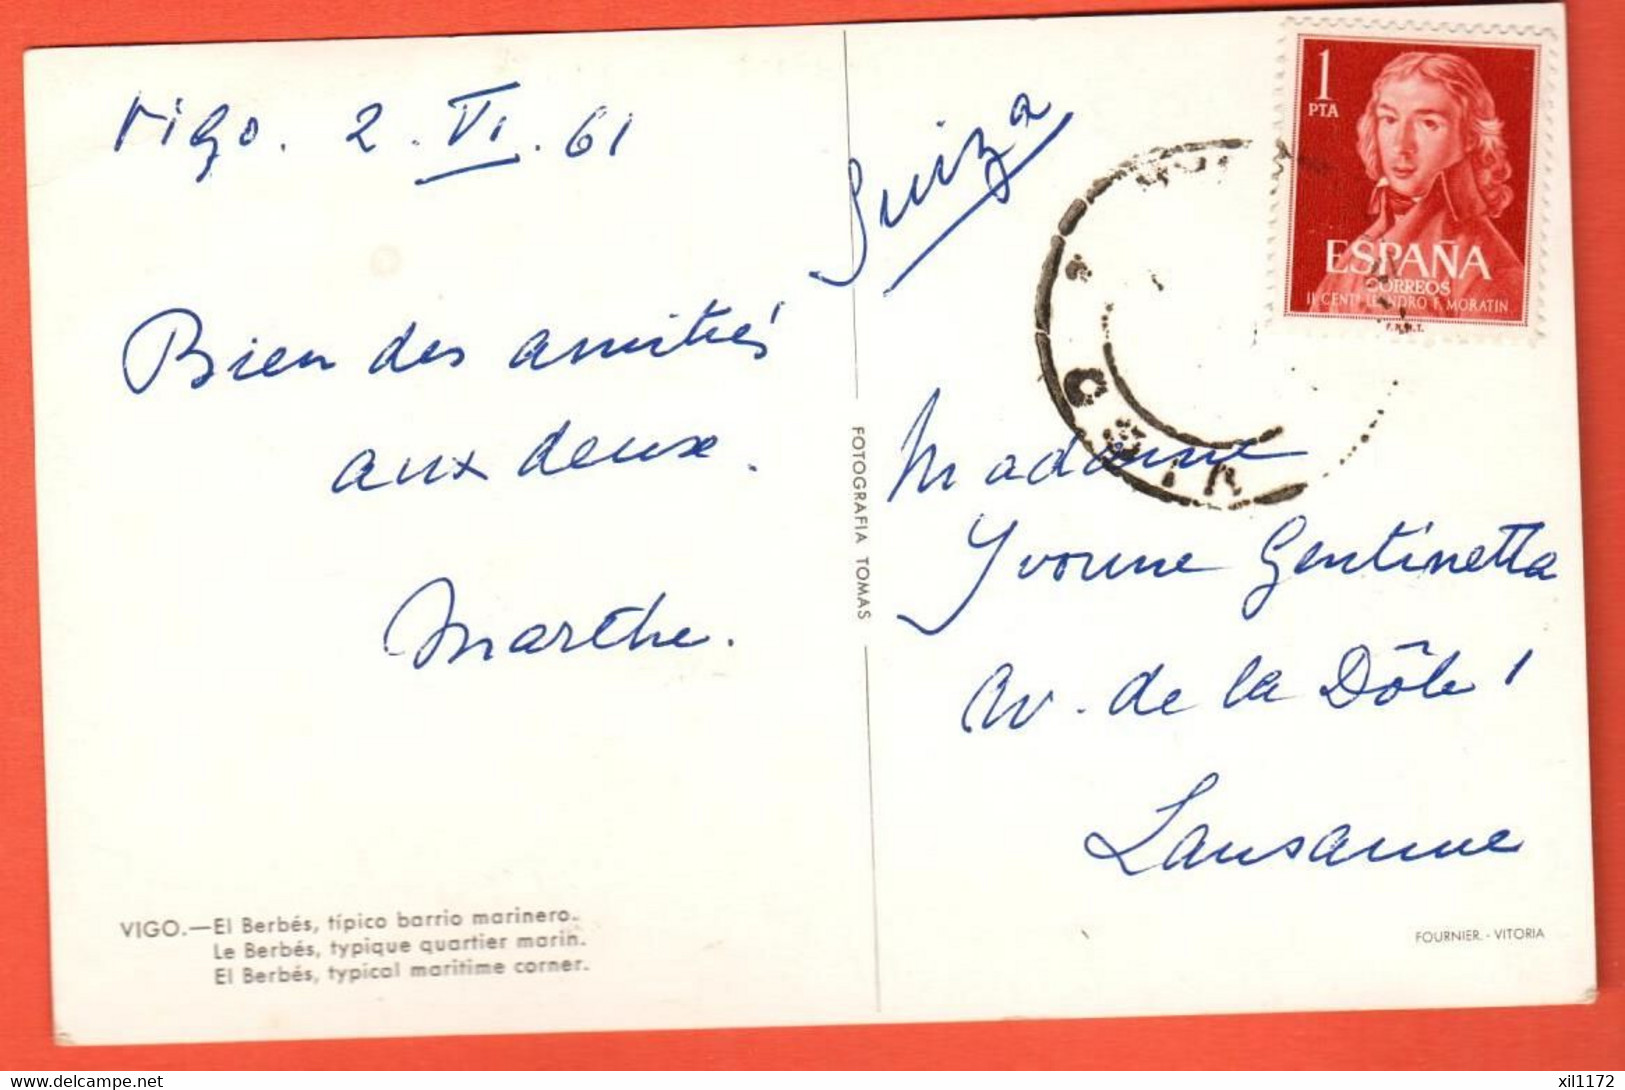 Vigo. 2. VI. 61
Bien des amitiés
aux deux.
Marthe.
VIGO.—El Berbés, típico barrio marinero.
Le Berbés, typique quartier marin.
El Berbés, typical maritime corner.
FOTOGRAFIA TOMAS
Suiza
1
PTA
ESPAÑA
CORREOS
II CENT. LEANDRO F. MORATIN
F.N.M.T.
Madame
Yvonne Gentinetta
Av. de la Dôle 1
Lausanne
FOURNIER.-VITORIA
delcampe.net
xil1172